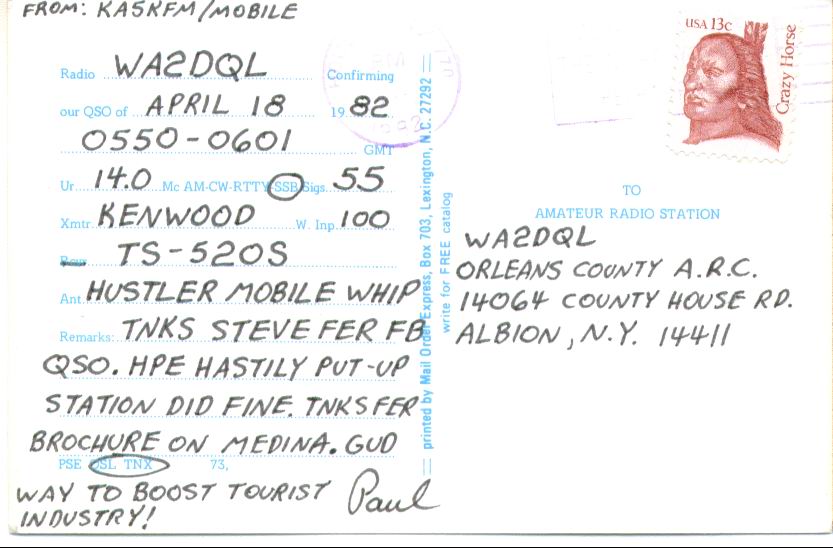 FROM: KA5KFM/MOBILE
Radio WA2DQL Confirming
our QSO of APRIL 18 1982
0550-0601 GMT
Ur 14.0 Mc AM-CW-RTTY-SSB Sigs 55
Xmtr. KENWOOD W. Inp. 100
TS-520S
Ant. HUSTLER MOBILE WHIP
Remarks: TNKS STEVE FER FB
QSO. HPE HASTILY PUT-UP
STATION DID FINE. TNKS FER
BROCHURE ON MEDINA. GUD
PSE QSL TNX 73,
WAY TO BOOST TOURIST
INDUSTRY!
Paul
printed by Mail Order Express, Box 703, Lexington, N.C. 27292
write for FREE catalog
USA 13c
Crazy Horse
TO
AMATEUR RADIO STATION
WA2DQL
ORLEANS COUNTY A.R.C.
14064 COUNTY HOUSE RD.
ALBION, N.Y. 14411